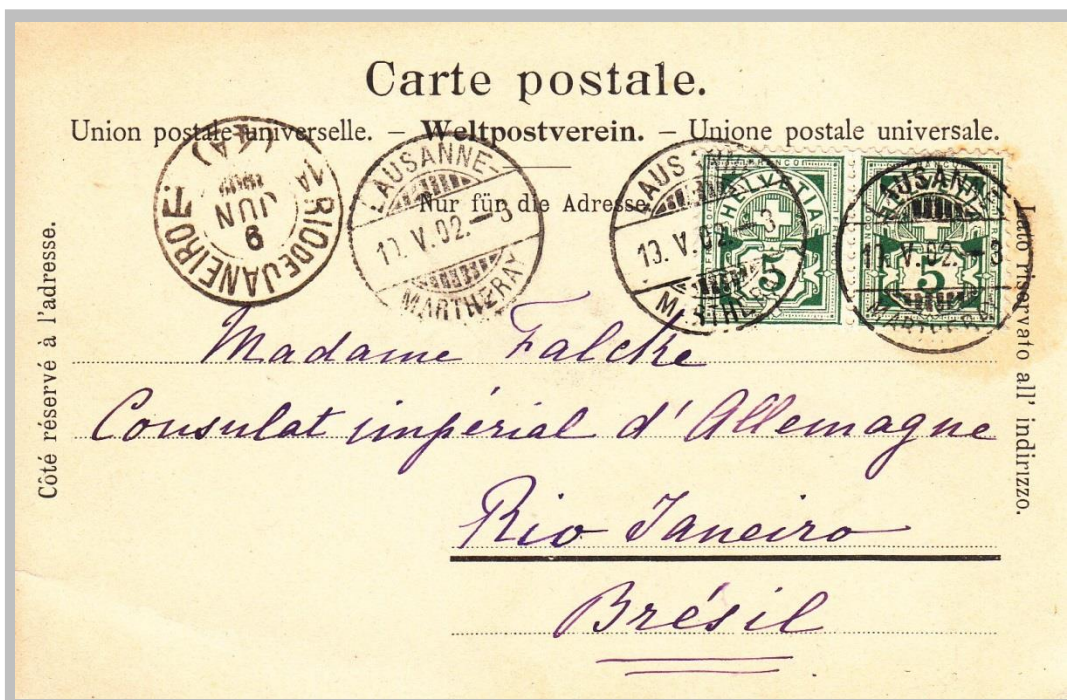 Carte postale.
Union postale universelle. – Weltpostverein. – Unione postale universale.
Nur für die Adresse
Côté réservé à l'adresse.
Lato riservato all' indirizzo.
1A RIO DE JANEIRO E.
(4A)
9
JUN
LAUSANNE
10. V. 02. – 3
MARTHERAY
LAUSANNE
10. V. 02. – 3
MARTHERAY
FRANCO
HELVETIA
5
LAUSANNE
10. V. 02. – 3
MARTHERAY
5
Madame Falcke
Consulat impérial d'Allemagne
Rio Janeiro
Brésil